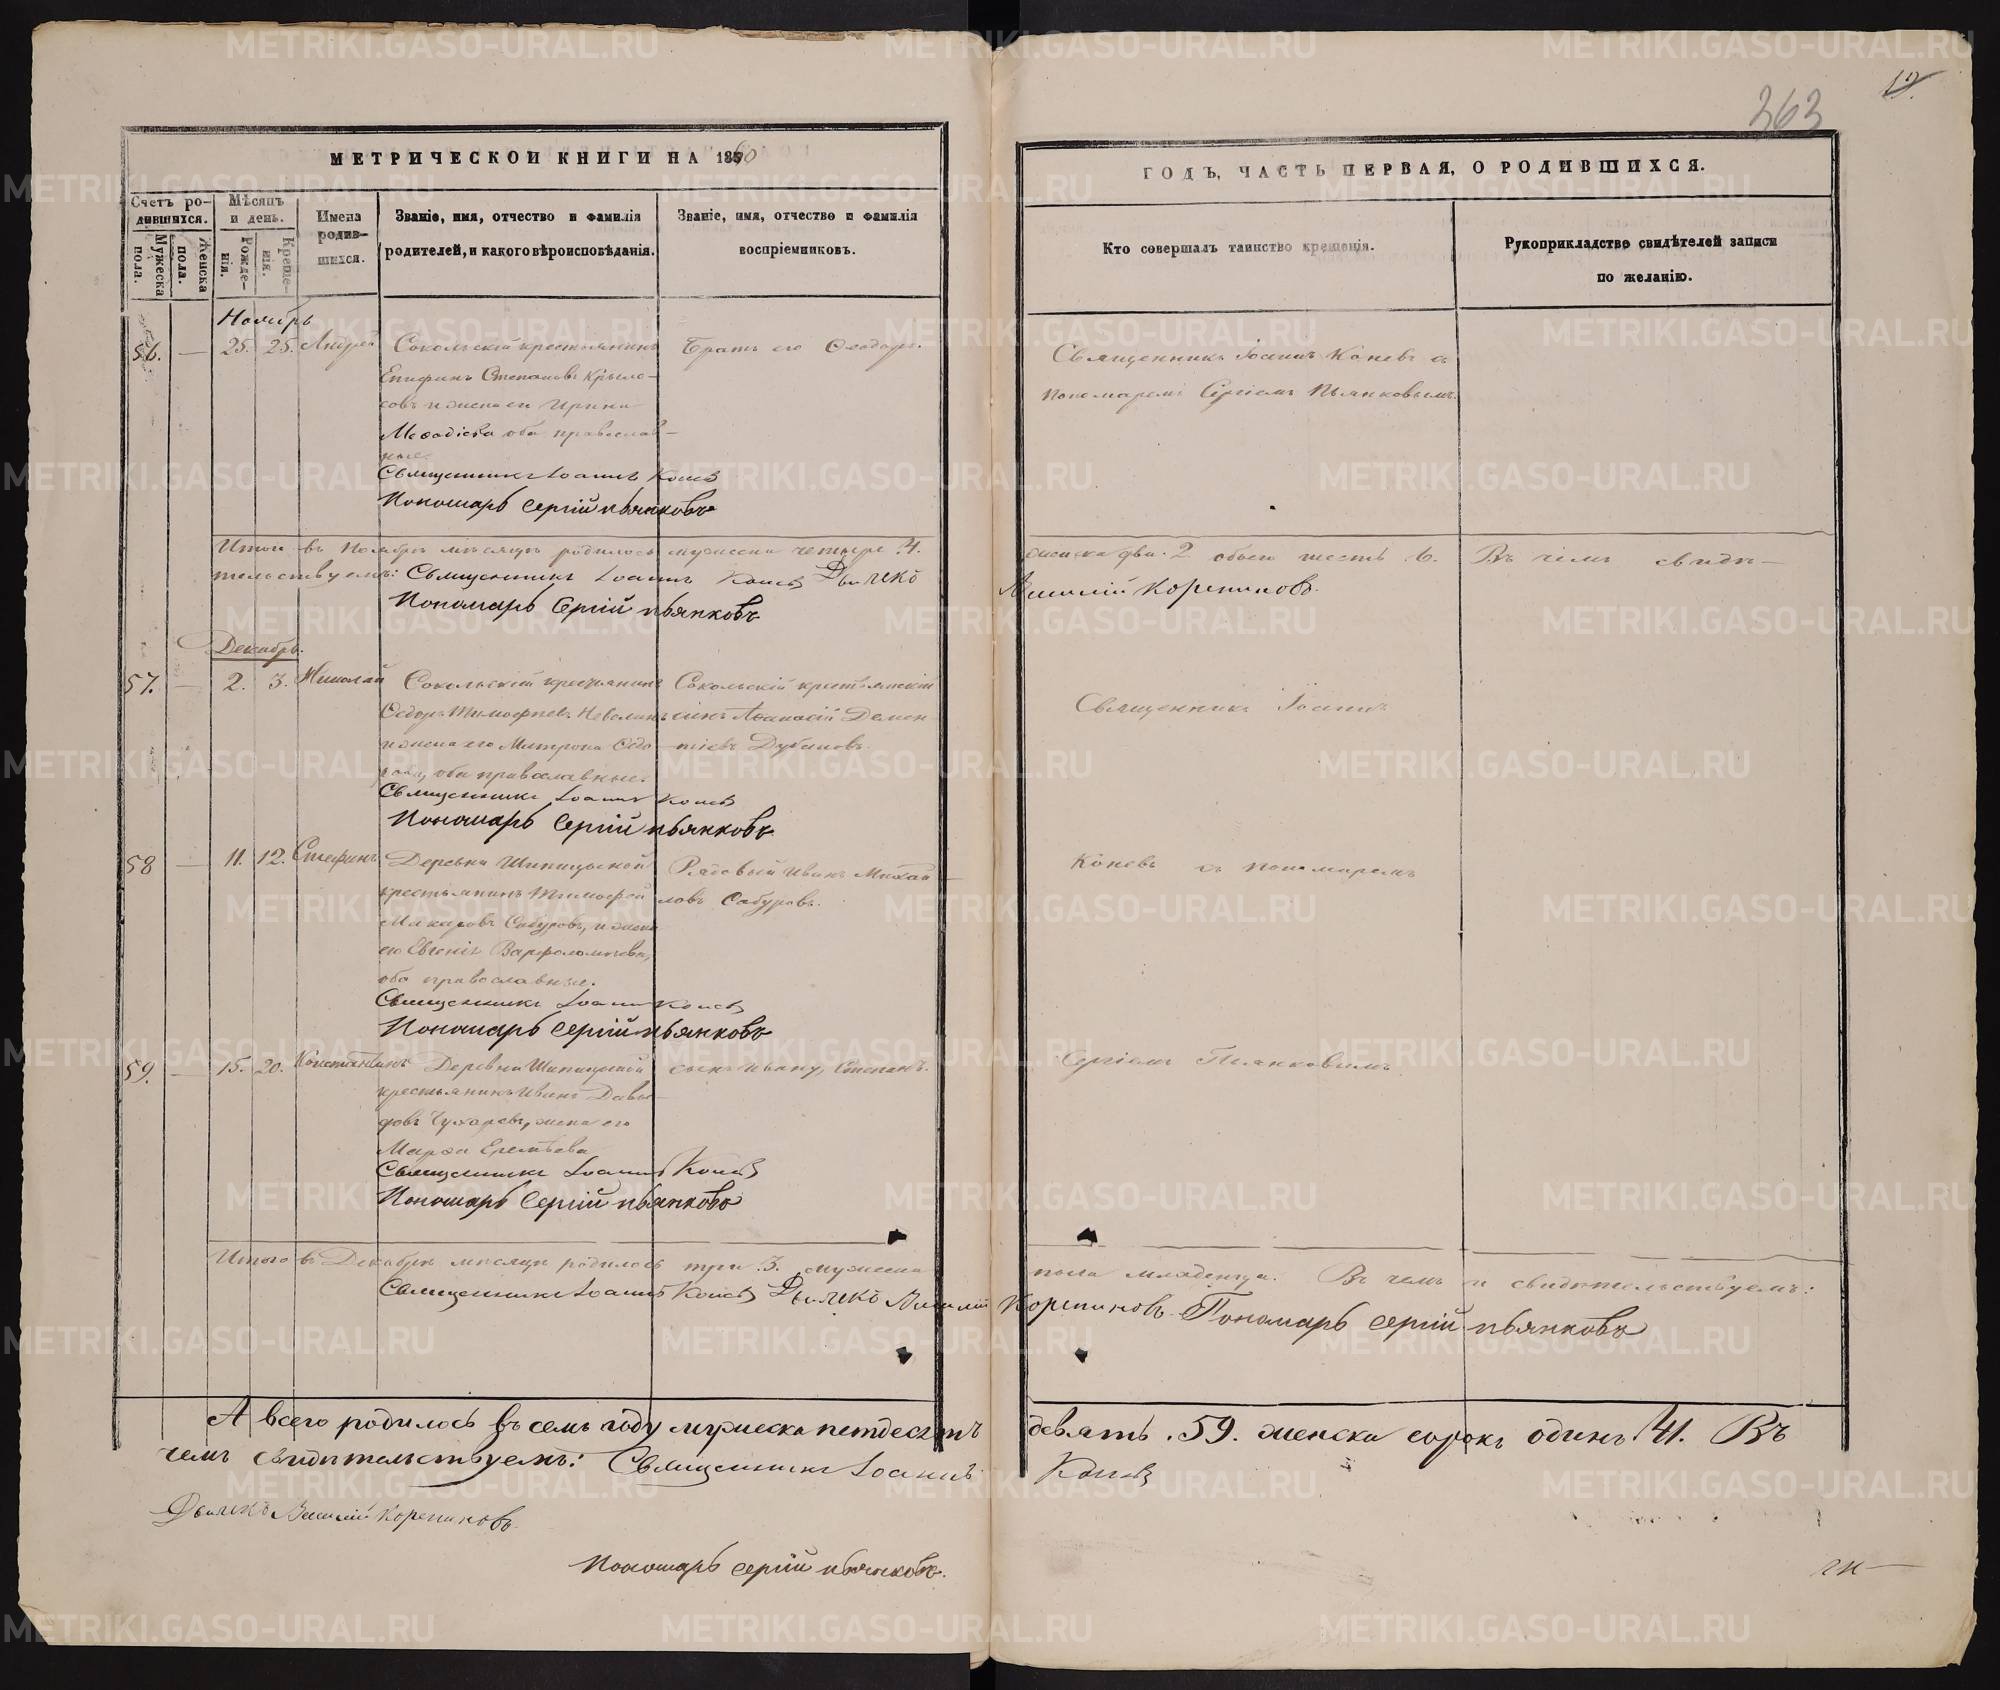 363
МЕТРИЧЕСКОЙ КНИГИ НА 1860
ГОДЪ, ЧАСТЬ ПЕРВАЯ, О РОДИВШИХСЯ.
Счетъ ро-
дившихся.
Мужеска
пола.
Женска
пола.
Мѣсяцъ
и день.
Рожде-
нія.
Креще-
нія.
Имена
родив-
шихся.
Званіе, имя, отчество и фамилія
родителей, и какого вѣроисповѣданія.
Званіе, имя, отчество и фамилія
воспріемниковъ.
Кто совершалъ таинство крещенія.
Рукоприкладство свидѣтелей записи
по желанію.
Ноябрь
56. — 25. 25. Андрей
Сокольскій крестьянинъ
Епифанъ Степановъ Крыло-
совъ и жена его Ирина
Меѳодіева оба православ-
ные.
Священникъ Іоаннъ Коневъ
Пономарь Сергій Пьянковъ
Братъ его Ѳеодоръ.
Священникъ Іоаннъ Коневъ съ
пономаремъ Сергіемъ Пьянковымъ.
Итого въ Ноябрѣ мѣсяцѣ родилось мужеска четыре 4. женска два. 2 обоего шесть 6. Въ чемъ свидѣ-
тельствуемъ: Священникъ Іоаннъ Коневъ Дьячекъ Василій Корепановъ.
Пономарь Сергій Пьянковъ
Декабрь.
57. — 2. 3. Николай
Сокольскій крестьянинъ
Ѳедоръ Тимофѣевъ Неволинъ
и жена его Матрона Ѳедо-
рова, оба православные.
Священникъ Іоаннъ Коневъ
Пономарь Сергій Пьянковъ
Сокольскій крестьянскій
сынъ Аѳанасій Демен-
тіевъ
Священникъ Іоаннъ
58 — 11. 12. Стефанъ
Деревни Шипицыной
крестьянинъ Тимофей
Макаровъ Сабуровъ, и жена
его Евгенія Варфоломѣева,
оба православные.
Священникъ Іоаннъ Коневъ
Пономарь Сергій Пьянковъ
Рядовый Иванъ Михай-
ловъ Сабуровъ.
Коневъ съ пономаремъ
59. — 15. 20. Константинъ
Деревни Шипицыной
крестьянинъ Иванъ Давы-
довъ Чухаревъ, жена его
Марѳа Еремѣева
Священникъ Іоаннъ Коневъ
Пономарь Сергій Пьянковъ
сынъ Степанъ.
Сергіемъ Пьянковымъ
Итого въ Декабрѣ мѣсяцѣ родилось три 3. мужеска пола младенца. Въ чемъ и свидѣтельствуемъ:
Священникъ Іоаннъ Коневъ Дьячекъ Василій Корепановъ Пономарь Сергій Пьянковъ
А всего родилось въ семъ году мужеска петдесятъ девять. 59. женска сорокъ одинъ 41. Въ
чемъ свидѣтельствуемъ: Священникъ Іоаннъ Коневъ
Дьячекъ Василій Корепановъ
Пономарь Сергій Пьянковъ.
METRIKI.GASO-URAL.RU